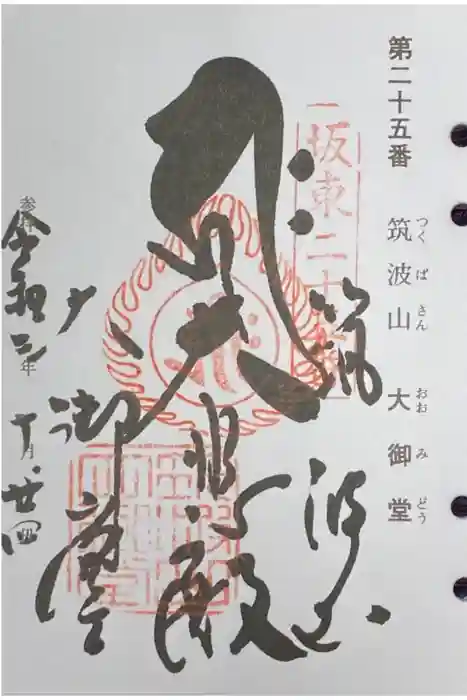 第二十五番 筑波山 大御堂
つくばさん おおみどう
坂東二十五番
筑波山
大悲殿
大御堂
参拝
令和三年
十月廿四